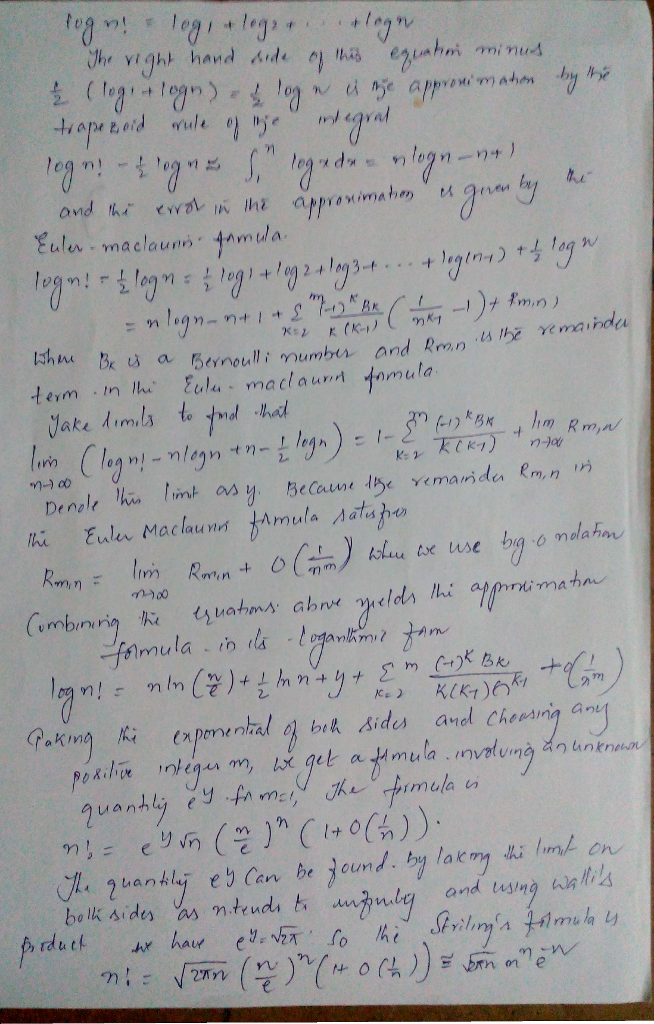 log n! = log 1 + log 2 + . . . . + log n
The right hand side of this equation minus
1/2 (log 1 + log n) = 1/2 log n is the approximation by the
trapezoid rule of the integral
log n! - 1/2 log n ≈ ∫₁ⁿ log x dx = n log n - n + 1
and the error in the approximation is given by the
Euler-maclaurin formula.
log n! - 1/2 log n = 1/2 log 1 + log 2 + log 3 + ... + log(n-1) + 1/2 log n
= n log n - n + 1 + Σ_{k=2}^{m} (-1)^k B_k / k(k-1) (1/n^{k-1} - 1) + R_{m,n}
Where B_k is a Bernoulli number and R_{m,n} is the remainder
term in the Euler-maclaurin formula.
Take limits to find that
lim_{n→∞} (log n! - n log n + n - 1/2 log n) = 1 - Σ_{k=2}^{m} (-1)^k B_k / k(k-1) + lim_{n→∞} R_{m,n}
Denote this limit as y. Because the remainder R_{m,n} in
the Euler Maclaurin formula satisfies
R_{m,n} = lim_{n→∞} R_{m,n} + O(1/n^m) where we use big-o notation
Combining the equations above yields the approximation
formula in its logarithmic form
log n! = n ln (n/e) + 1/2 ln n + y + Σ_{k=2}^{m} (-1)^k B_k / k(k-1) n^{k-1} + O(1/n^m)
Taking the exponential of both sides and choosing any
positive integer m, we get a formula involving an unknown
quantity e^y. for m=1, The formula is
n! = e^y √n (n/e)^n (1 + O(1/n)).
The quantity e^y can be found by taking the limit on
both sides as n tends to infinity and using wallis
product we have e^y = √2π. So the Striling's formula is
n! = √2πn (n/e)^n (1 + O(1/n)) ≅ √2πn n^n e^-n